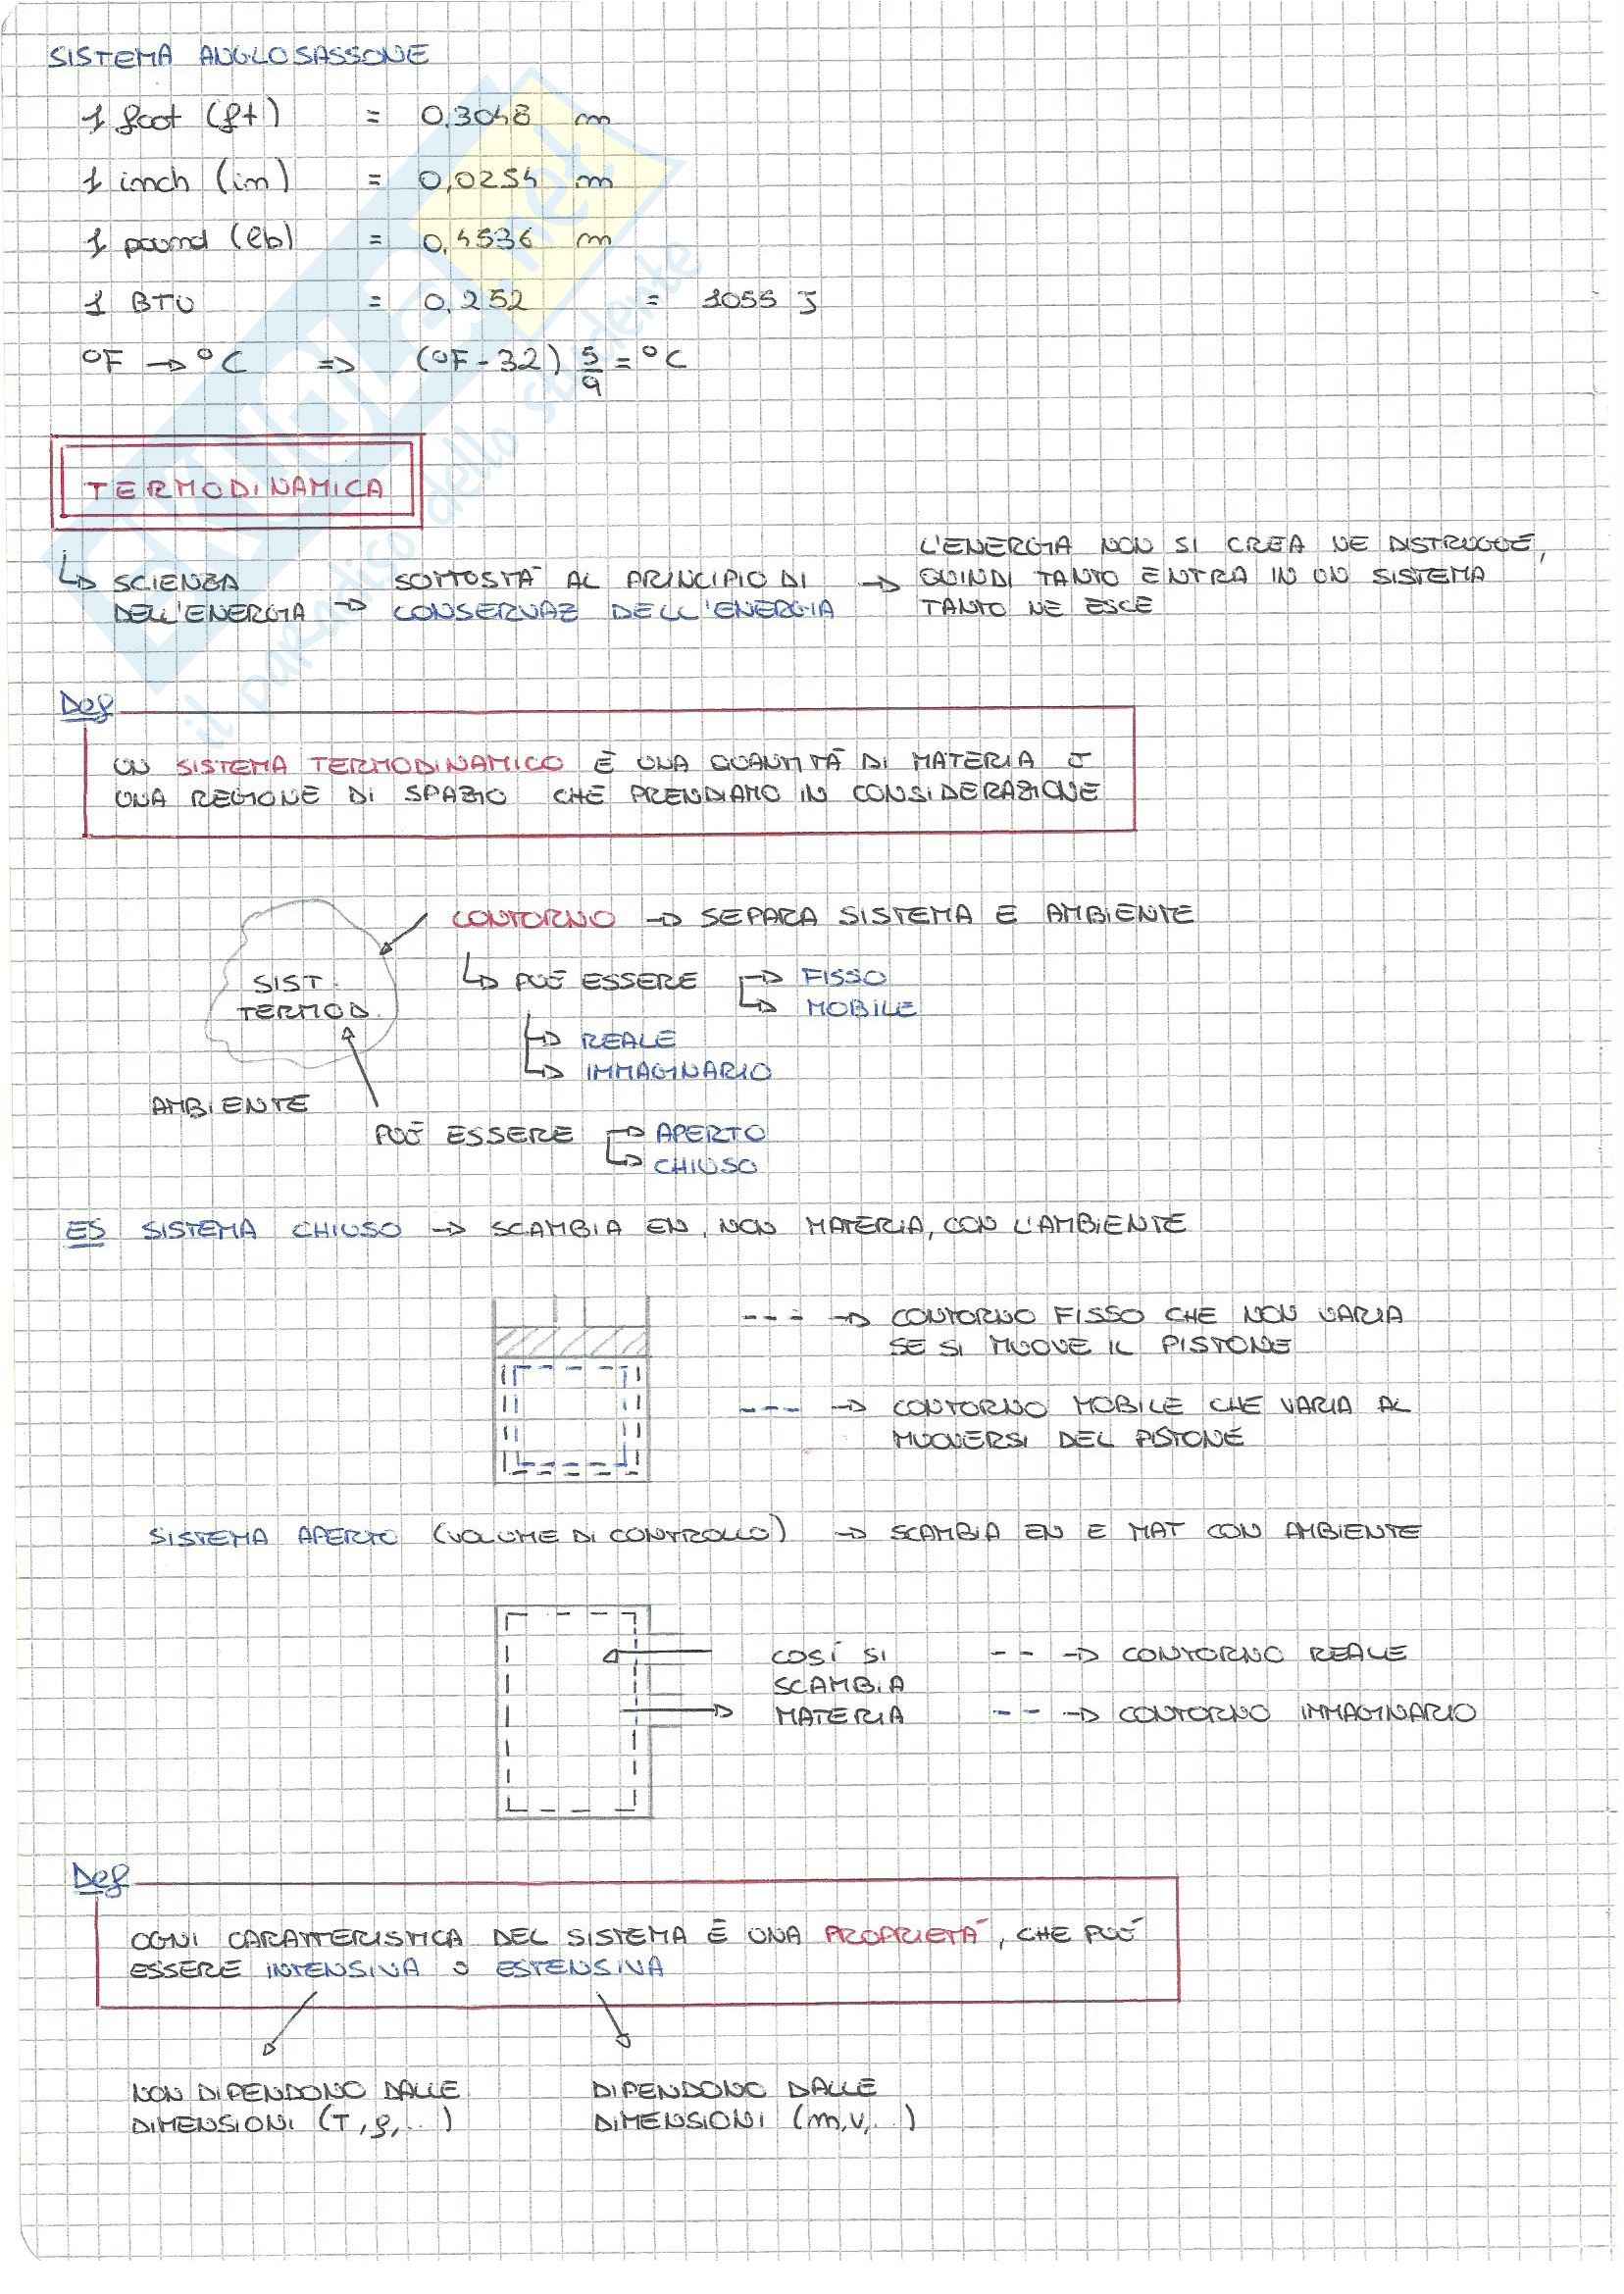 SISTEMA ANGLOSASSONE
1 foot (ft) = 0,3048 m
1 inch (in) = 0,0254 m
1 pound (lb) = 0,4536 m
1 BTU = 0,252 = 1055 J
°F → °C => (°F - 32) 5/9 = °C
TERMODINAMICA
↳ SCIENZA DELL'ENERGIA → SOTTOSTÀ AL PRINCIPIO DI CONSERVAZ DELL'ENERGIA → L'ENERGIA NON SI CREA NE DISTRUGGE,
QUINDI TANTO ENTRA IN UN SISTEMA
TANTO NE ESCE
Def
UN SISTEMA TERMODINAMICO È UNA QUANTITÀ DI MATERIA O
UNA REGIONE DI SPAZIO CHE PRENDIAMO IN CONSIDERAZIONE
CONTORNO → SEPARA SISTEMA E AMBIENTE
SIST.
TERMOD.
↳ PUÒ ESSERE → FISSO
↳ MOBILE
→ REALE
↳ IMMAGINARIO
AMBIENTE
PUÒ ESSERE → APERTO
↳ CHIUSO
ES SISTEMA CHIUSO → SCAMBIA EN, NON MATERIA, CON L'AMBIENTE
--- → CONTORNO FISSO CHE NON VARIA
SE SI MUOVE IL PISTONE
--- → CONTORNO MOBILE CHE VARIA AL
MUOVERSI DEL PISTONE
SISTEMA APERTO (VOLUME DI CONTROLLO) → SCAMBIA EN E MAT CON AMBIENTE
COSÍ SI
SCAMBIA
MATERIA
-- → CONTORNO REALE
-- → CONTORNO IMMAGINARIO
Def
OGNI CARATTERISTICA DEL SISTEMA È UNA PROPRIETÀ, CHE PUÒ
ESSERE INTENSIVA O ESTENSIVA
NON DIPENDONO DALLE
DIMENSIONI (T, ρ, ..)
DIPENDONO DALLE
DIMENSIONI (m, V, ..)
il paradiso dello studente